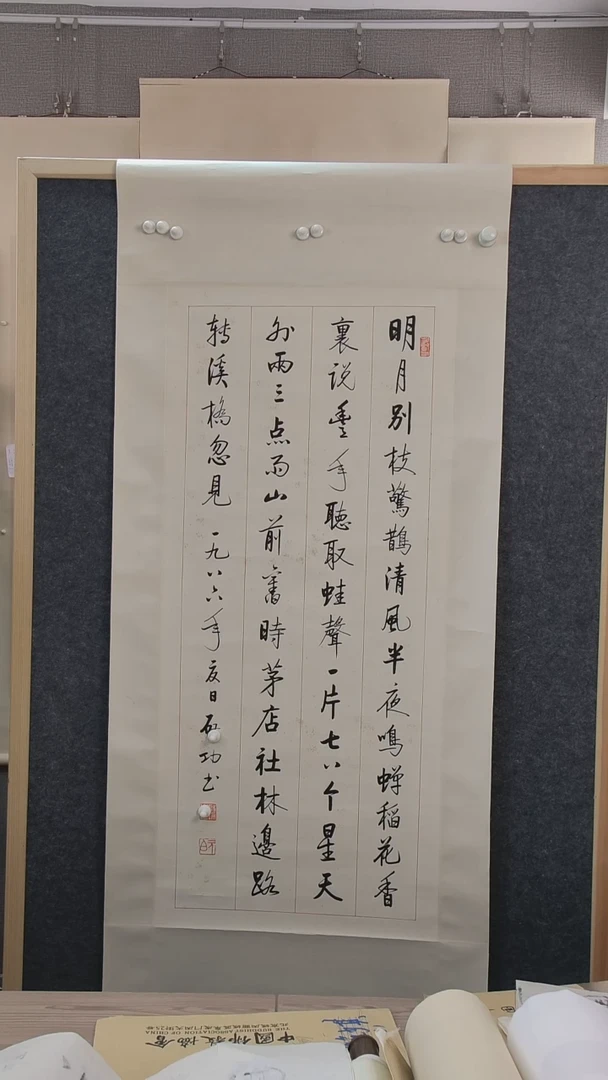 明月别枝驚鵲清風半夜鳴蟬稻花香
裏说豐年聽取蛙聲一片七八个星天
外兩三点雨山前舊時茅店社林邊路
轉溪橋忽見 一九八六年夏日 启功书
中國佛教協會
THE BUDDHIST ASSOCIATION OF CHINA